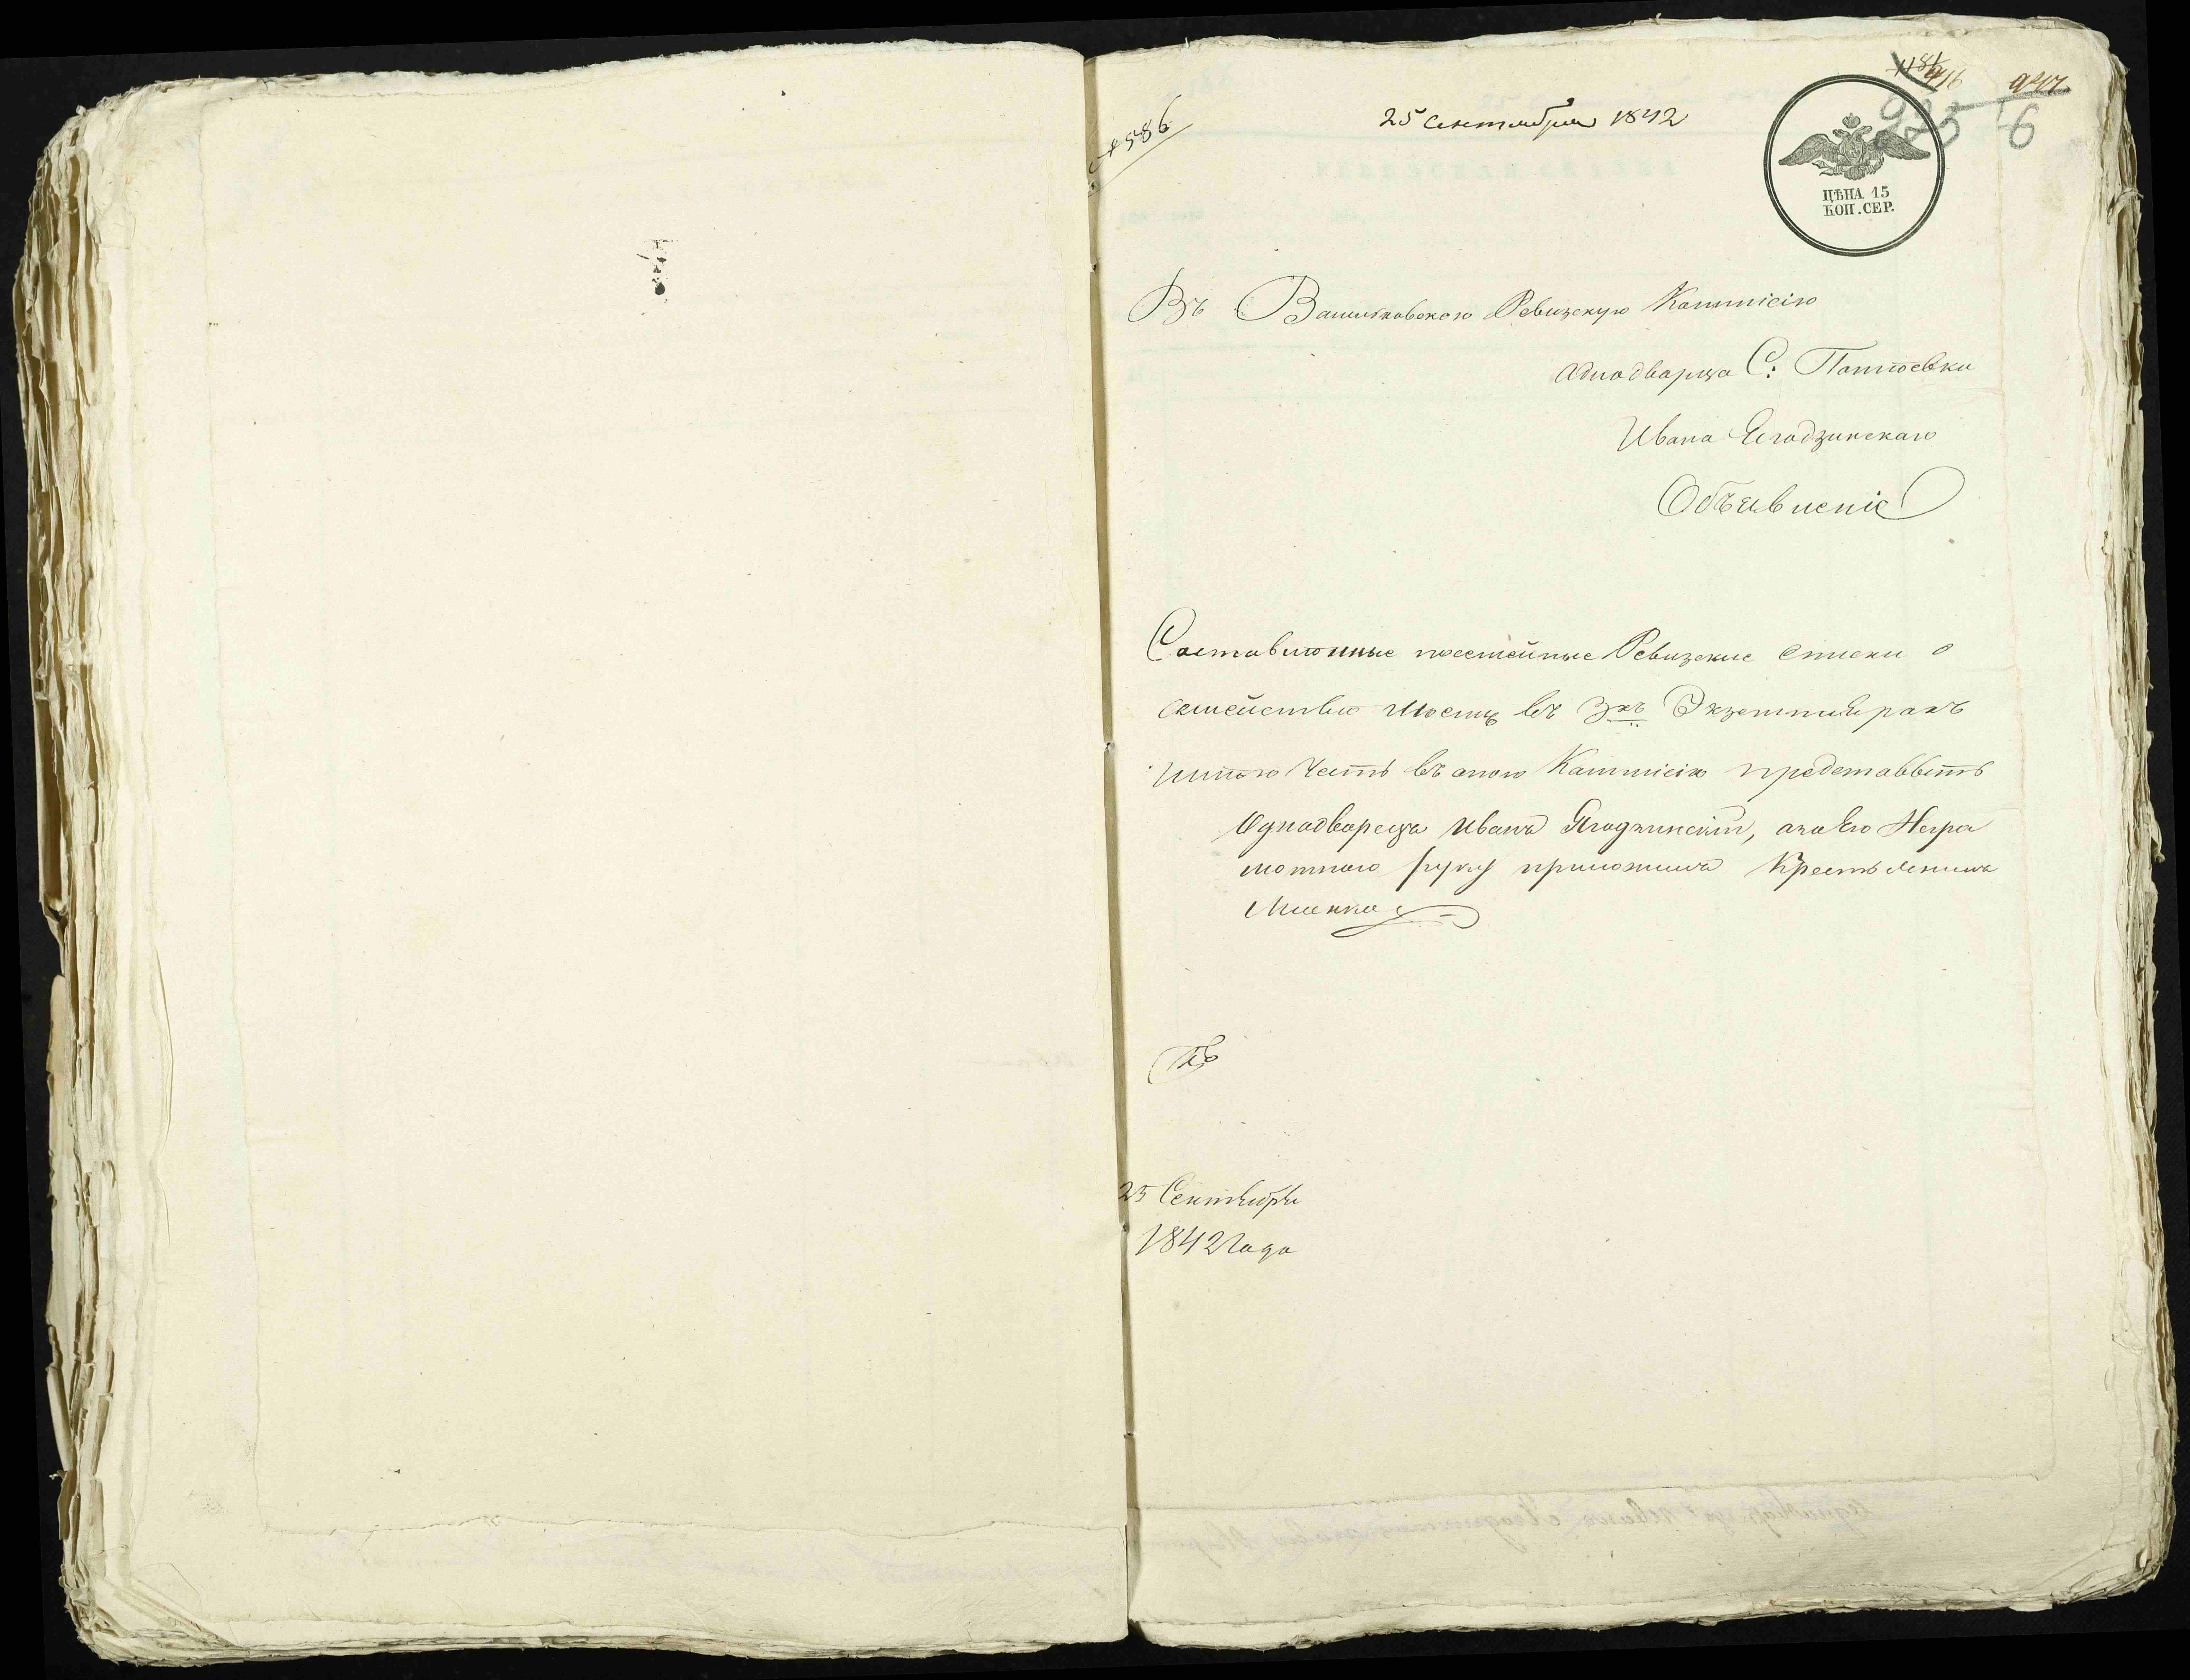 № 586
25 Сентября 1842
947
925
6
ЦѢНА 15
КОП. СЕР.
Въ Васильковскою Ревизскую Коммисію
однодворца С:
Ивана Ягодзинскаго
Объявленіе
Составленные посемейные Ревизские списки о
семействѣ моемъ въ 3хъ Экземплярахъ
имѣю честь въ оною Коммисію представить
Однодворецъ Иванъ Ягодзинскій, а за его Негра
мотного руку приложилъ Крестьянинъ
25 Сентября
1842 Года